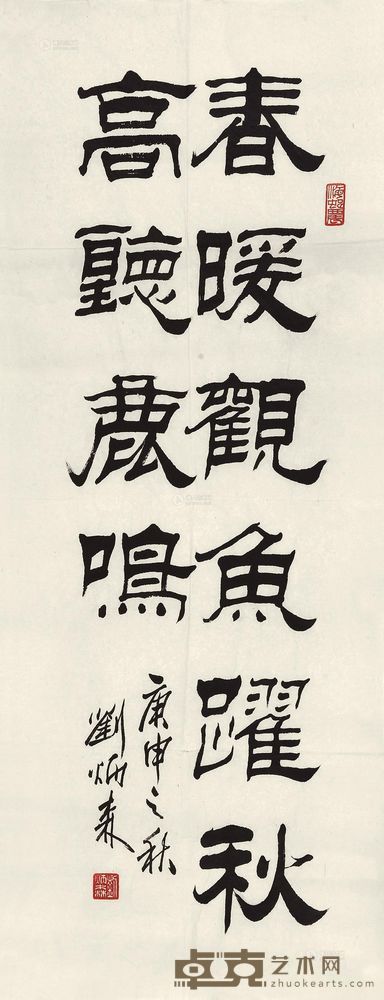 春暖觀魚躍秋
高聽鹿鳴
庚申之秋
劉炳森
卓克艺术网
zhuokearts.com